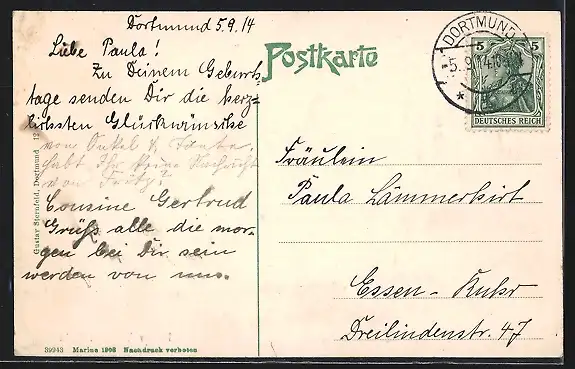 Dortmund 5.9.14
Liebe Paula!
Zu Deinem Geburts
tage senden Dir die herz=
lichsten Glückwünsche
von Onkel & Tante.
habt Ihr keine Nachricht
von Fritz?
Cousine Gertrud
Grüß alle die mor-
gen bei Dir sein
werden von uns.
Gustav Sternfeld, Dortmund
39943 Marine 1908 Nachdruck verboten
Postkarte
DORTMUND
5.9.14
5 5
DEUTSCHES REICH
Fräulein
Paula Lämmerhirt
Essen-Ruhr
Dreilindenstr. 47